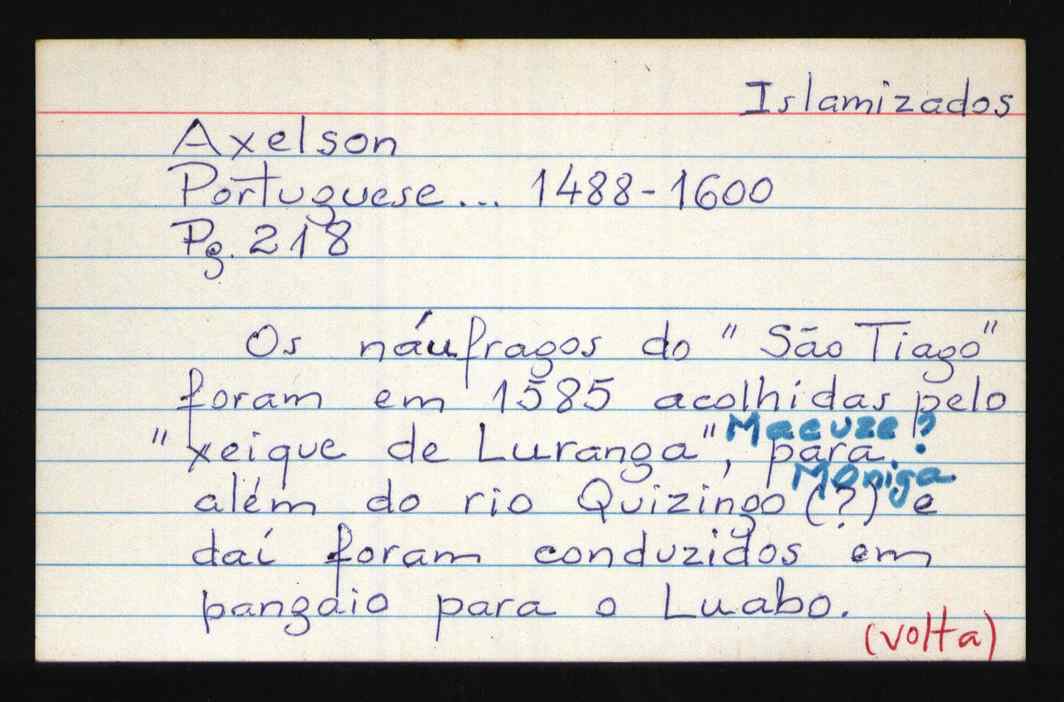 Islamizados
Axelson
Portuguese... 1488-1600
Pg. 218
Os náufragos do "São Tiago"
foram em 1585 acolhidas pelo
Macuze?
"xeique de Luranga", para
Môniga
além do rio Quizingo (?) e
daí foram conduzidos em
pangaio para o Luabo.
(volta)